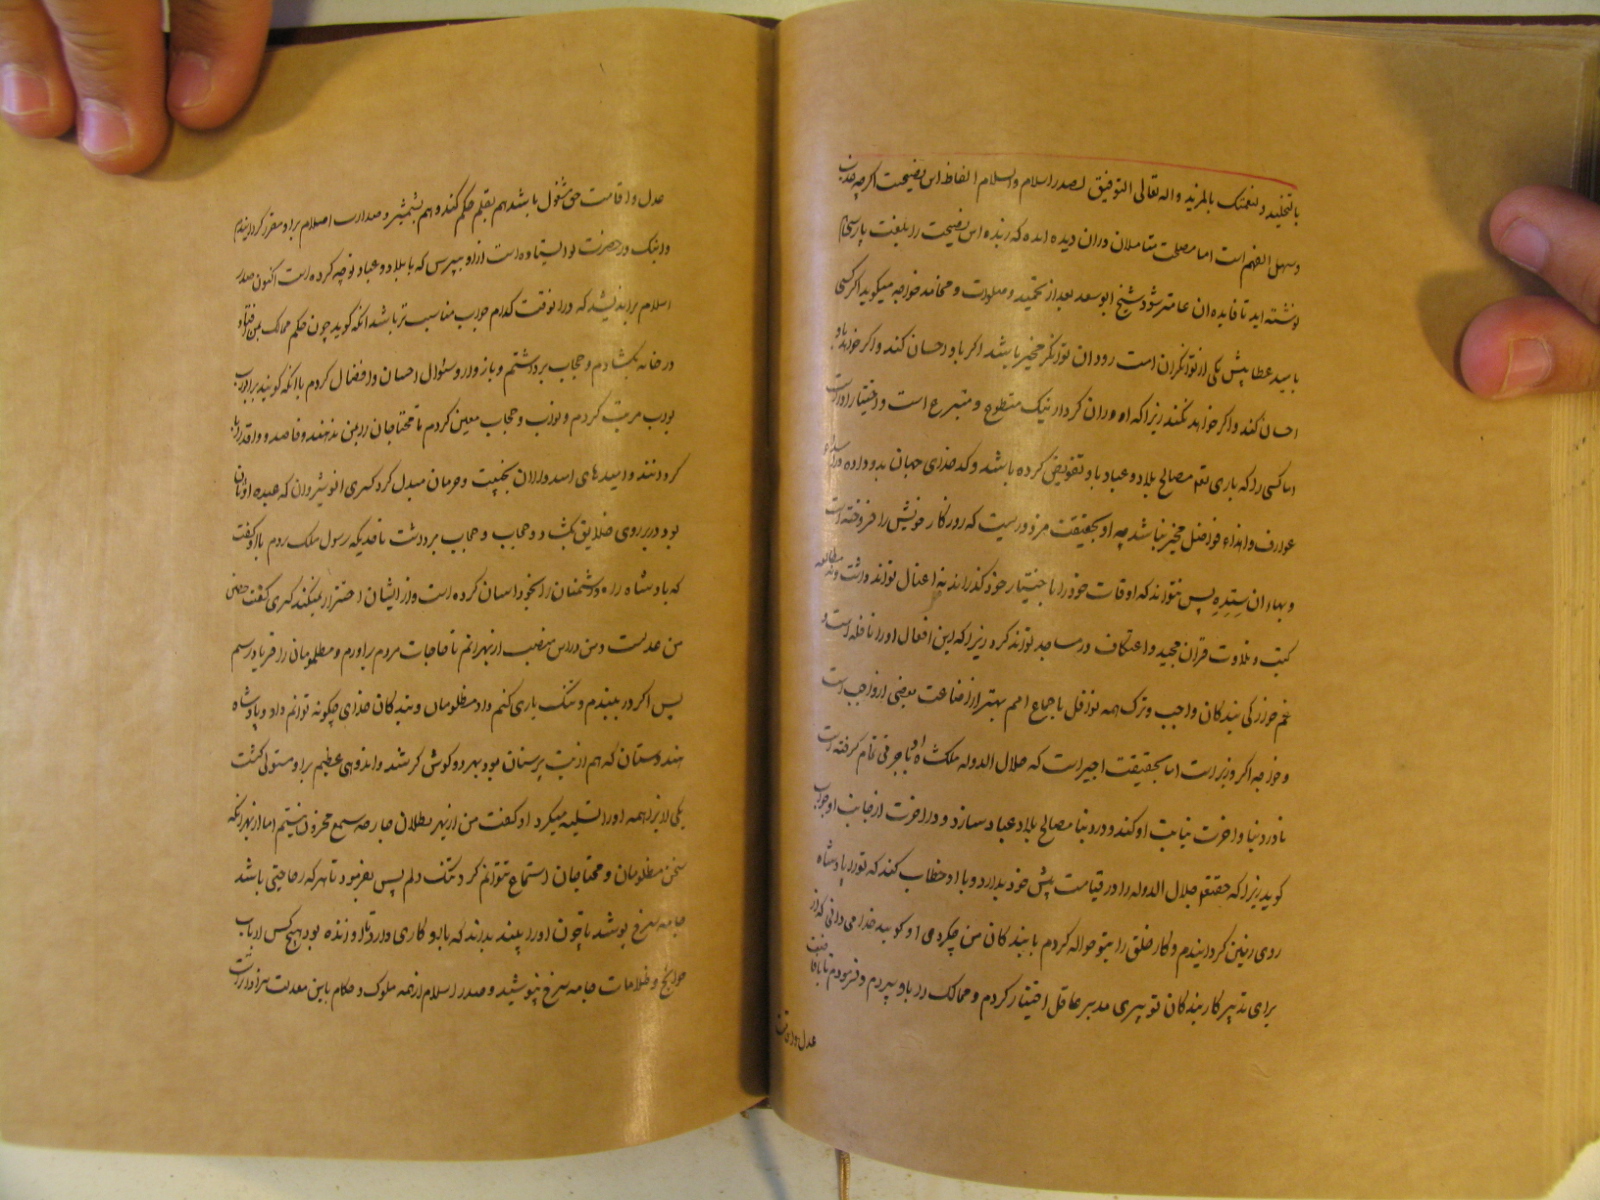 بالتخلید و نعمتک بالمزید واله تعالی التوفیق لصدر اسلام والسلام الفاظ این نصیحت اکرچه عذب
وسهل الفهم است اما مصلحت متاملان دران دیده امده که زبده این نصیحت را بلغت پارسی
نوشته اید تا فایده ان عامتر شود شیخ ابو سعد بعد از تحمید و صلوات و محامد خواجه میکوید اکر کسی
بامید عطا پیش یکی از توانکران است رود ان توانکر مخیر باشد اکر باو احسان کند واکر خواهد باو
احسان کند واکر خواهد نکند زیرا که او دران کردار نیک متطوع و متبرع است و اختیار اوراست
اما کسی را که باری تعه مصالح بلاد و عباد باو تفویض کرده باشد و کدخدای جهان بدو داده در اسداء
عوارف واهداء فواضل مخیر نباشد چه او بحقیقت مزدوریست که روزکار خویش را فروخته است
و بهاء ان ستده پس نتواند که اوقات خود را باختیار خود کذراند نه اعتال تواند داشت ونه مطالعه
کتب و تلاوت قران مجید واعتکاف در مساجد تواند کرد زیرا که این افعال اورا نافله است و
غم خوزرکی بندکان واجب و ترک همه نوافل باجماع امم بهتر از اضاعت بعضی از واجب است
و خواجه اکر وزیر است اما بحقیقت اجیر است که جلال الدوله ملکشاه اورا باجر فی تمام کرفته است
تا در دنیا واخرت نیابت او کند و در دنیا مصالح بلاد عباد سازد و در اخرت از جانب او جواب
کوید زیرا که حقتعه جلال الدوله را در قیامت پیش خود بدارد و با او خطاب کند که تورا پادشاه
روی زمین کردانیدم و کار خلق را بتو حواله کردم با بندکان من چکردی او کوید خدا می دانی که از
برای تدبیر کار بندکان تو پیری مدبر عاقل اختیار کردم و ممالک را باو سپردم و فرمودم تا باقامت
عدل و اقامت
عدل و اقامت حق مشغول باشد هم بقلم حکم کند و هم بشمشیر و صدارت اسلام براو مقرر کردانیدم
واینک در حضرت تو ایستاده است ازاو بپرس که با بلاد و عباد تو چه کرده است اکنون صدر
اسلام براندیشد که درانوقت کدام جواب مناسب تر باشد انکه کوید چون حکم ممالک بمن افتاد
در خانه بکشادم و حجاب برداشتم و با زوار و سئوال احسان وافضال کردم یا انکه کویند بر ابواب
بواب مرتب کردم و نواب و حجاب معین کردم تا محتاجان را بمن ندهند و قاصد و وافد را
کرداننند وامیدهای امیدواران بخیبت و حرمان مبدل کرد کسری انوشیروان که عبده اوثان
بود در بر روی خلایق بکشاد و حجاب و حجاب برداشت تا حدیکه رسول ملک روم باو کفت
که پادشاه راه دشمنان را بخود اسان کرده است واز ایشان احتراز نمیکند کسری کفت حصن
من عدلست ومن در این منصب ازبهر انم تا حاجات مردم براورم و مظلومان را فریاد رسم
پس اکر در ببندم و تنک باری کنم داد مظلومان وبندکان خدای چکونه توانم داد و پادشاه
هندوستان که هم از بت پرستان بود بهر دو کوش کر شد و اندوهی عظیم براو مستولی کشت
یکی از برای همه اورا تسلیه میکرد او کفت من ازبهر بطلان جارحه سمع محزون نیستم اما ازبهر انکه
سخن مظلومان و محتاجان استماع نتوانم کرد تنک دلم پس بفرمود تا هر که را حاجتی باشد
جامه سرخ بوشد تا چون اورا ببیند بداند که با او کاری دارد تا او زنده بود هیچ کس از ارباب
حوایج و ظلامات جامه سرخ نپوشید و صدر اسلام از همه ملوک و حکام باین معدلت سزاوارتر است